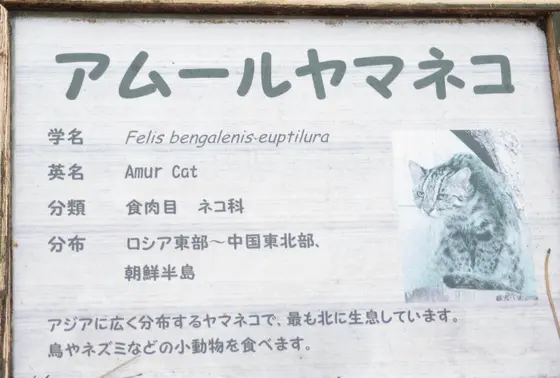 アムールヤマネコ
学名 Felis bengalenis-euptilura
英名 Amur Cat
分類 食肉目 ネコ科
分布 ロシア東部～中国東北部、
朝鮮半島
アジアに広く分布するヤマネコで、最も北に生息しています。
鳥やネズミなどの小動物を食べます。